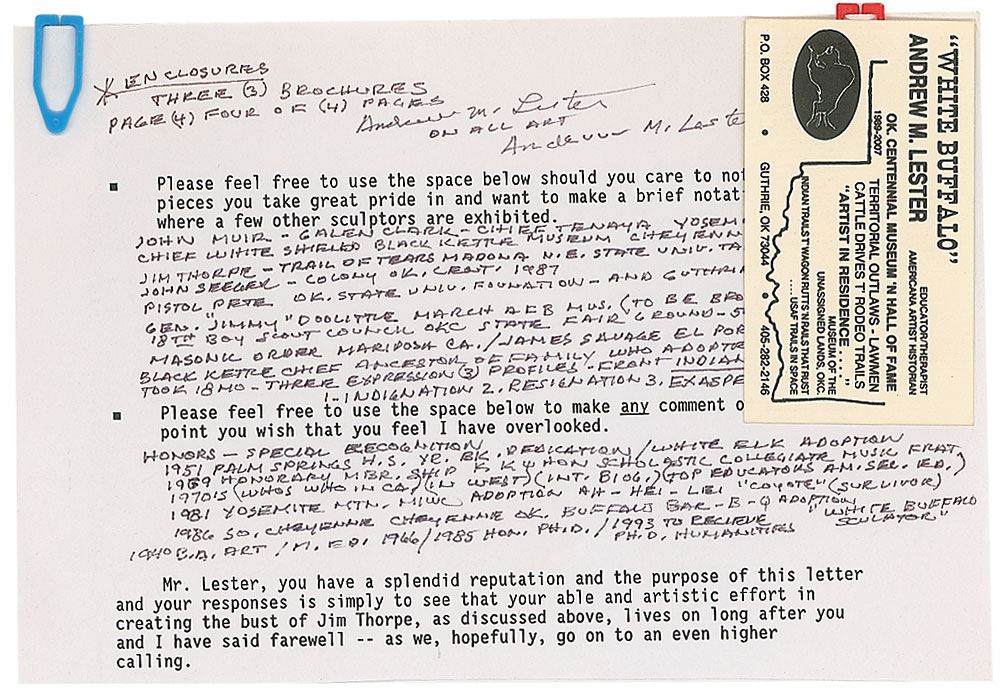 * ENCLOSURES
THREE (3) BROCHURES
PAGE (4) FOUR OF (4) PAGES
Andrew M. Lester
ON ALL ART
Andrew M. Leste
▪ Please feel free to use the space below should you care to not
pieces you take great pride in and want to make a brief notat
where a few other sculptors are exhibited.
JOHN MUIR - GALEN CLARK - CHIEF TENAYA YOSEM
CHIEF WHITE SHIELED BLACK KETTLE MUSEUM CHEYENN
JIM THORPE - TRAIL OF TEARS MADONA N.E. STATE UNIV. TA
JOHN SEEGER - COLONY OK. CENT. 1987
PISTOL PETE OK. STATE UNIV. FOUNATION - AND GUTHRI
GEN. "JIMMY" DOOLITTLE MARCH AFB MUS. (TO BE BRO
18TH BOY SCOUT COUNCIL OKC STATE FAIR GROUND - 5
MASONIC ORDER MARIPOSA CA./JAMES SAVAGE EL POR
BLACK KETTLE CHIEF ANCESTOR OF FAMILY WHO ADOPT
TOOK 18 MO - THREE EXPRESSION (3) PROFILES - FRONT INDIAN
1 - INDIGNATION 2. RESIGNATION 3. EXASPE
▪ Please feel free to use the space below to make any comment o
point you wish that you feel I have overlooked.
HONORS - SPECIAL RECOGNITION
1951 PALM SPRINGS H.S. YR. BK. DEDICATION/WHITE ELK ADOPTION
1969 HONORARY MBR. SHIP K K Ψ HON SCHOLASTIC COLLEGIATE MUSIC FRAT.
1970'S (WHOS WHO IN CA) (IN WEST) (INT. BIOG.) (TOP EDUCATORS AM. SEC. ED.)
1981 YOSEMITE MTN. MIWC ADOPTION AH-HEI-LEI "COYOTE" (SURVIVOR)
1986 SO. CHEYENNE CHEYENNE OK. BUFFALO BAR-B-Q ADOPTION "WHITE BUFFALO
SCULATOR"
B.A. ART / M. ED. 1966 / 1985 HON. PH.D. / 1993 TO RECIEVE
PH.D. HUMANITIES
Mr. Lester, you have a splendid reputation and the purpose of this letter
and your responses is simply to see that your able and artistic effort in
creating the bust of Jim Thorpe, as discussed above, lives on long after you
and I have said farewell -- as we, hopefully, go on to an even higher
calling.
"WHITE BUFFALO"
ANDREW M. LESTER
EDUCATOR/THERAPIST
AMERICANA ARTIST HISTORIAN
OK. CENTENNIAL MUSEUM 'N HALL OF FAME
1989-2007
TERRITORIAL OUTLAWS - LAWMEN
CATTLE DRIVES T' RODEO TRAILS
"ARTIST IN RESIDENCE . . . ."
MUSEUM OF THE
UNASSIGNED LANDS, OKC.
INDIAN TRAILS T' WAGON RUTTS 'N RAILS THAT RUST
. . . . USAF TRAILS IN SPACE
P.O. BOX 428 • GUTHRIE, OK 73044 • 405-282-2146